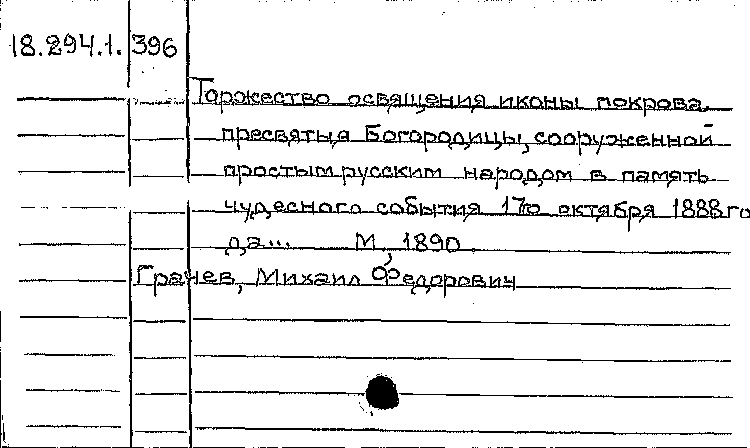 18.294.1. 396
Торжество освящения иконы покрова
пресвятыя Богородицы, сооруженной
простым русским народом в память
чудесного события 17го октября 1888 го
да... М., 1890.
Грачев, Михаил Федорович